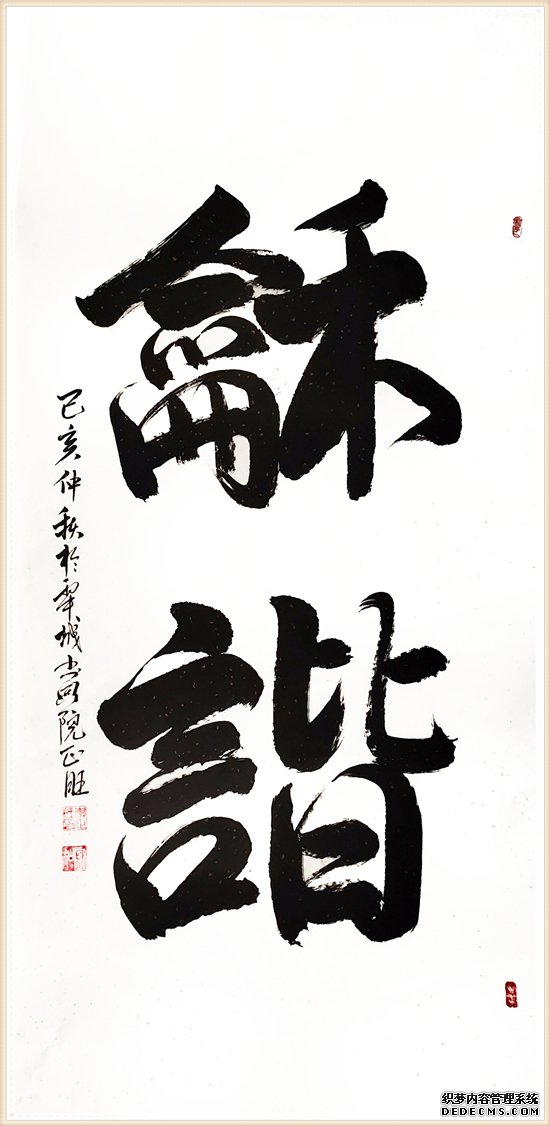 龢諧
己亥仲秋於翠城书画院正旺
织梦内容管理系统
DEDECMS.COM